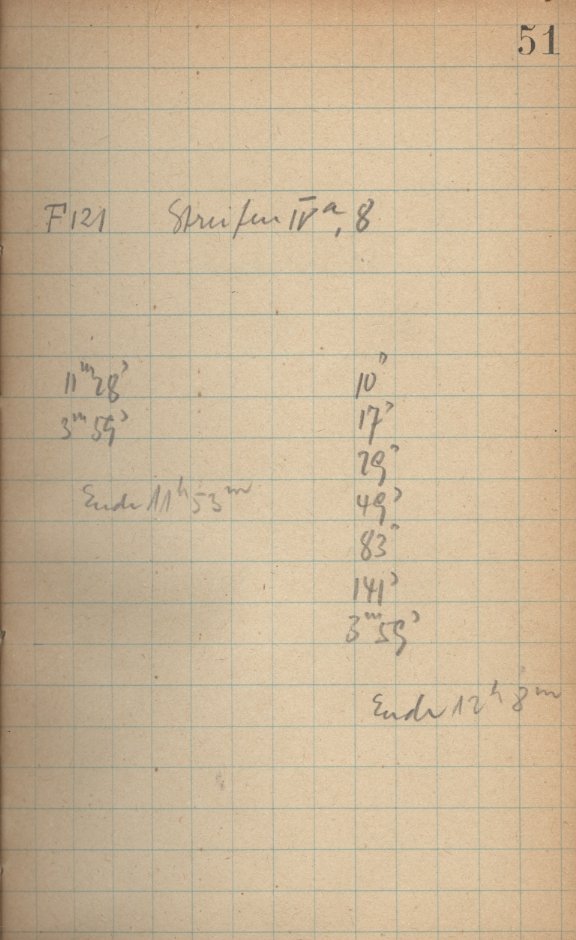 51
F121 Streifen IVa, 8
11m 28s
3m 59s
Ende 11h 53m
10s
17s
29s
49s
83s
141s
3m 59s
Ende 12h 8m